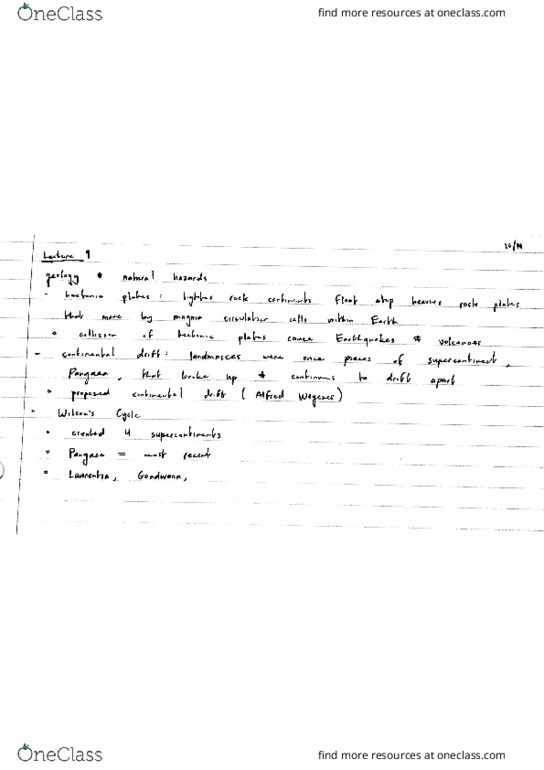 OneClass find more resources at oneclass.com
Lecture 9
geology + natural hazards
- tectonic plates: lighter rock continents float atop heavier rock plates
that move by magma circulation cells within Earth
• collision of tectonic plates cause Earthquakes + volcanoes
- continental drift: landmasses were once pieces of supercontinent,
Pangaea, that broke up + continues to drift apart
• proposed continental drift (Alfred Wegener)
- Wilson's Cycle
• created 4 supercontinents
• Pangaea = most recent
• Laurentia, Gondwana,
OneClass find more resources at oneclass.com